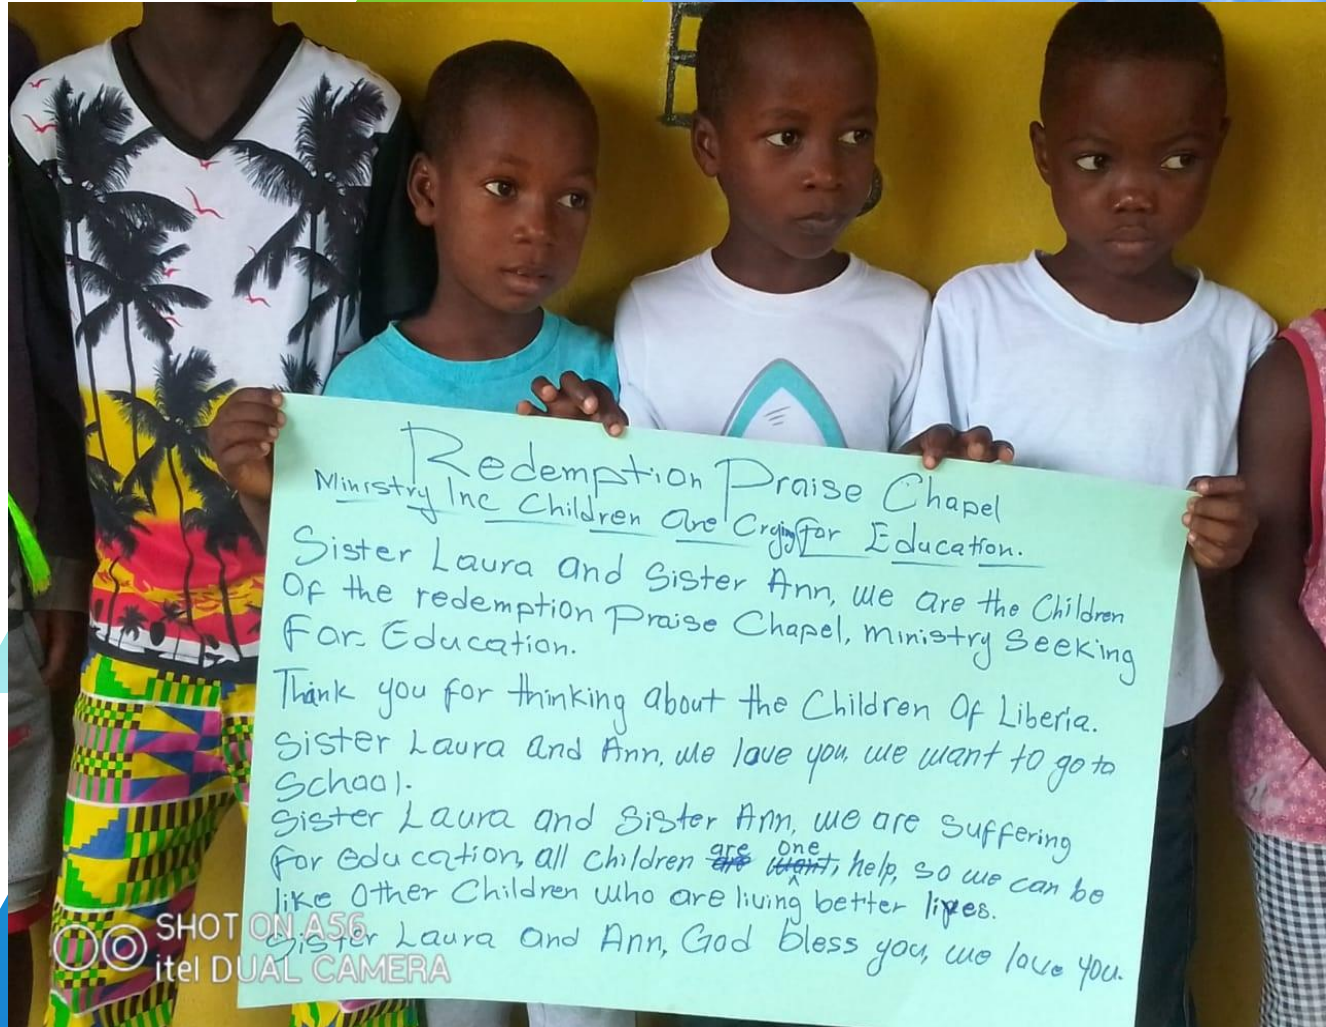 Redemption Praise Chapel
Ministry Inc Children are Crying for Education.
Sister Laura and Sister Ann, we are the Children
Of the redemption Praise Chapel, ministry Seeking
For Education.
Thank you for thinking about the Children Of Liberia.
Sister Laura and Ann, we love you, we want to go to
School.
Sister Laura and Sister Ann, we are Suffering
for education, all children are one, help, so we can be
like Other Children who are living better lives.
Sister Laura and Ann, God bless you, we love you.
SHOT ON A56
itel DUAL CAMERA